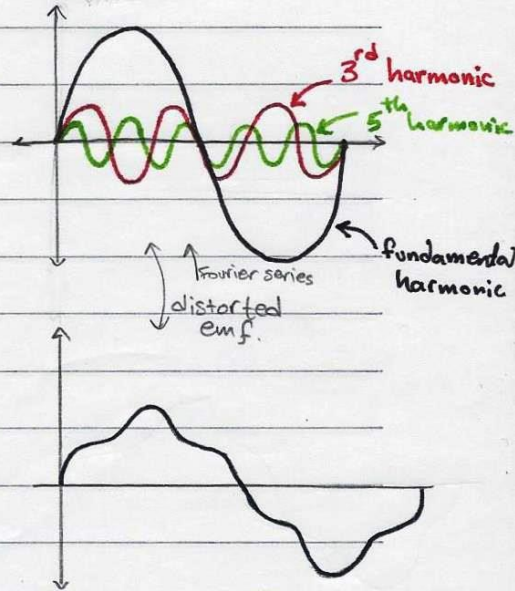 3rd harmonic
5th harmonic
fundamental
harmonic
Fourier series
distorted
emf.